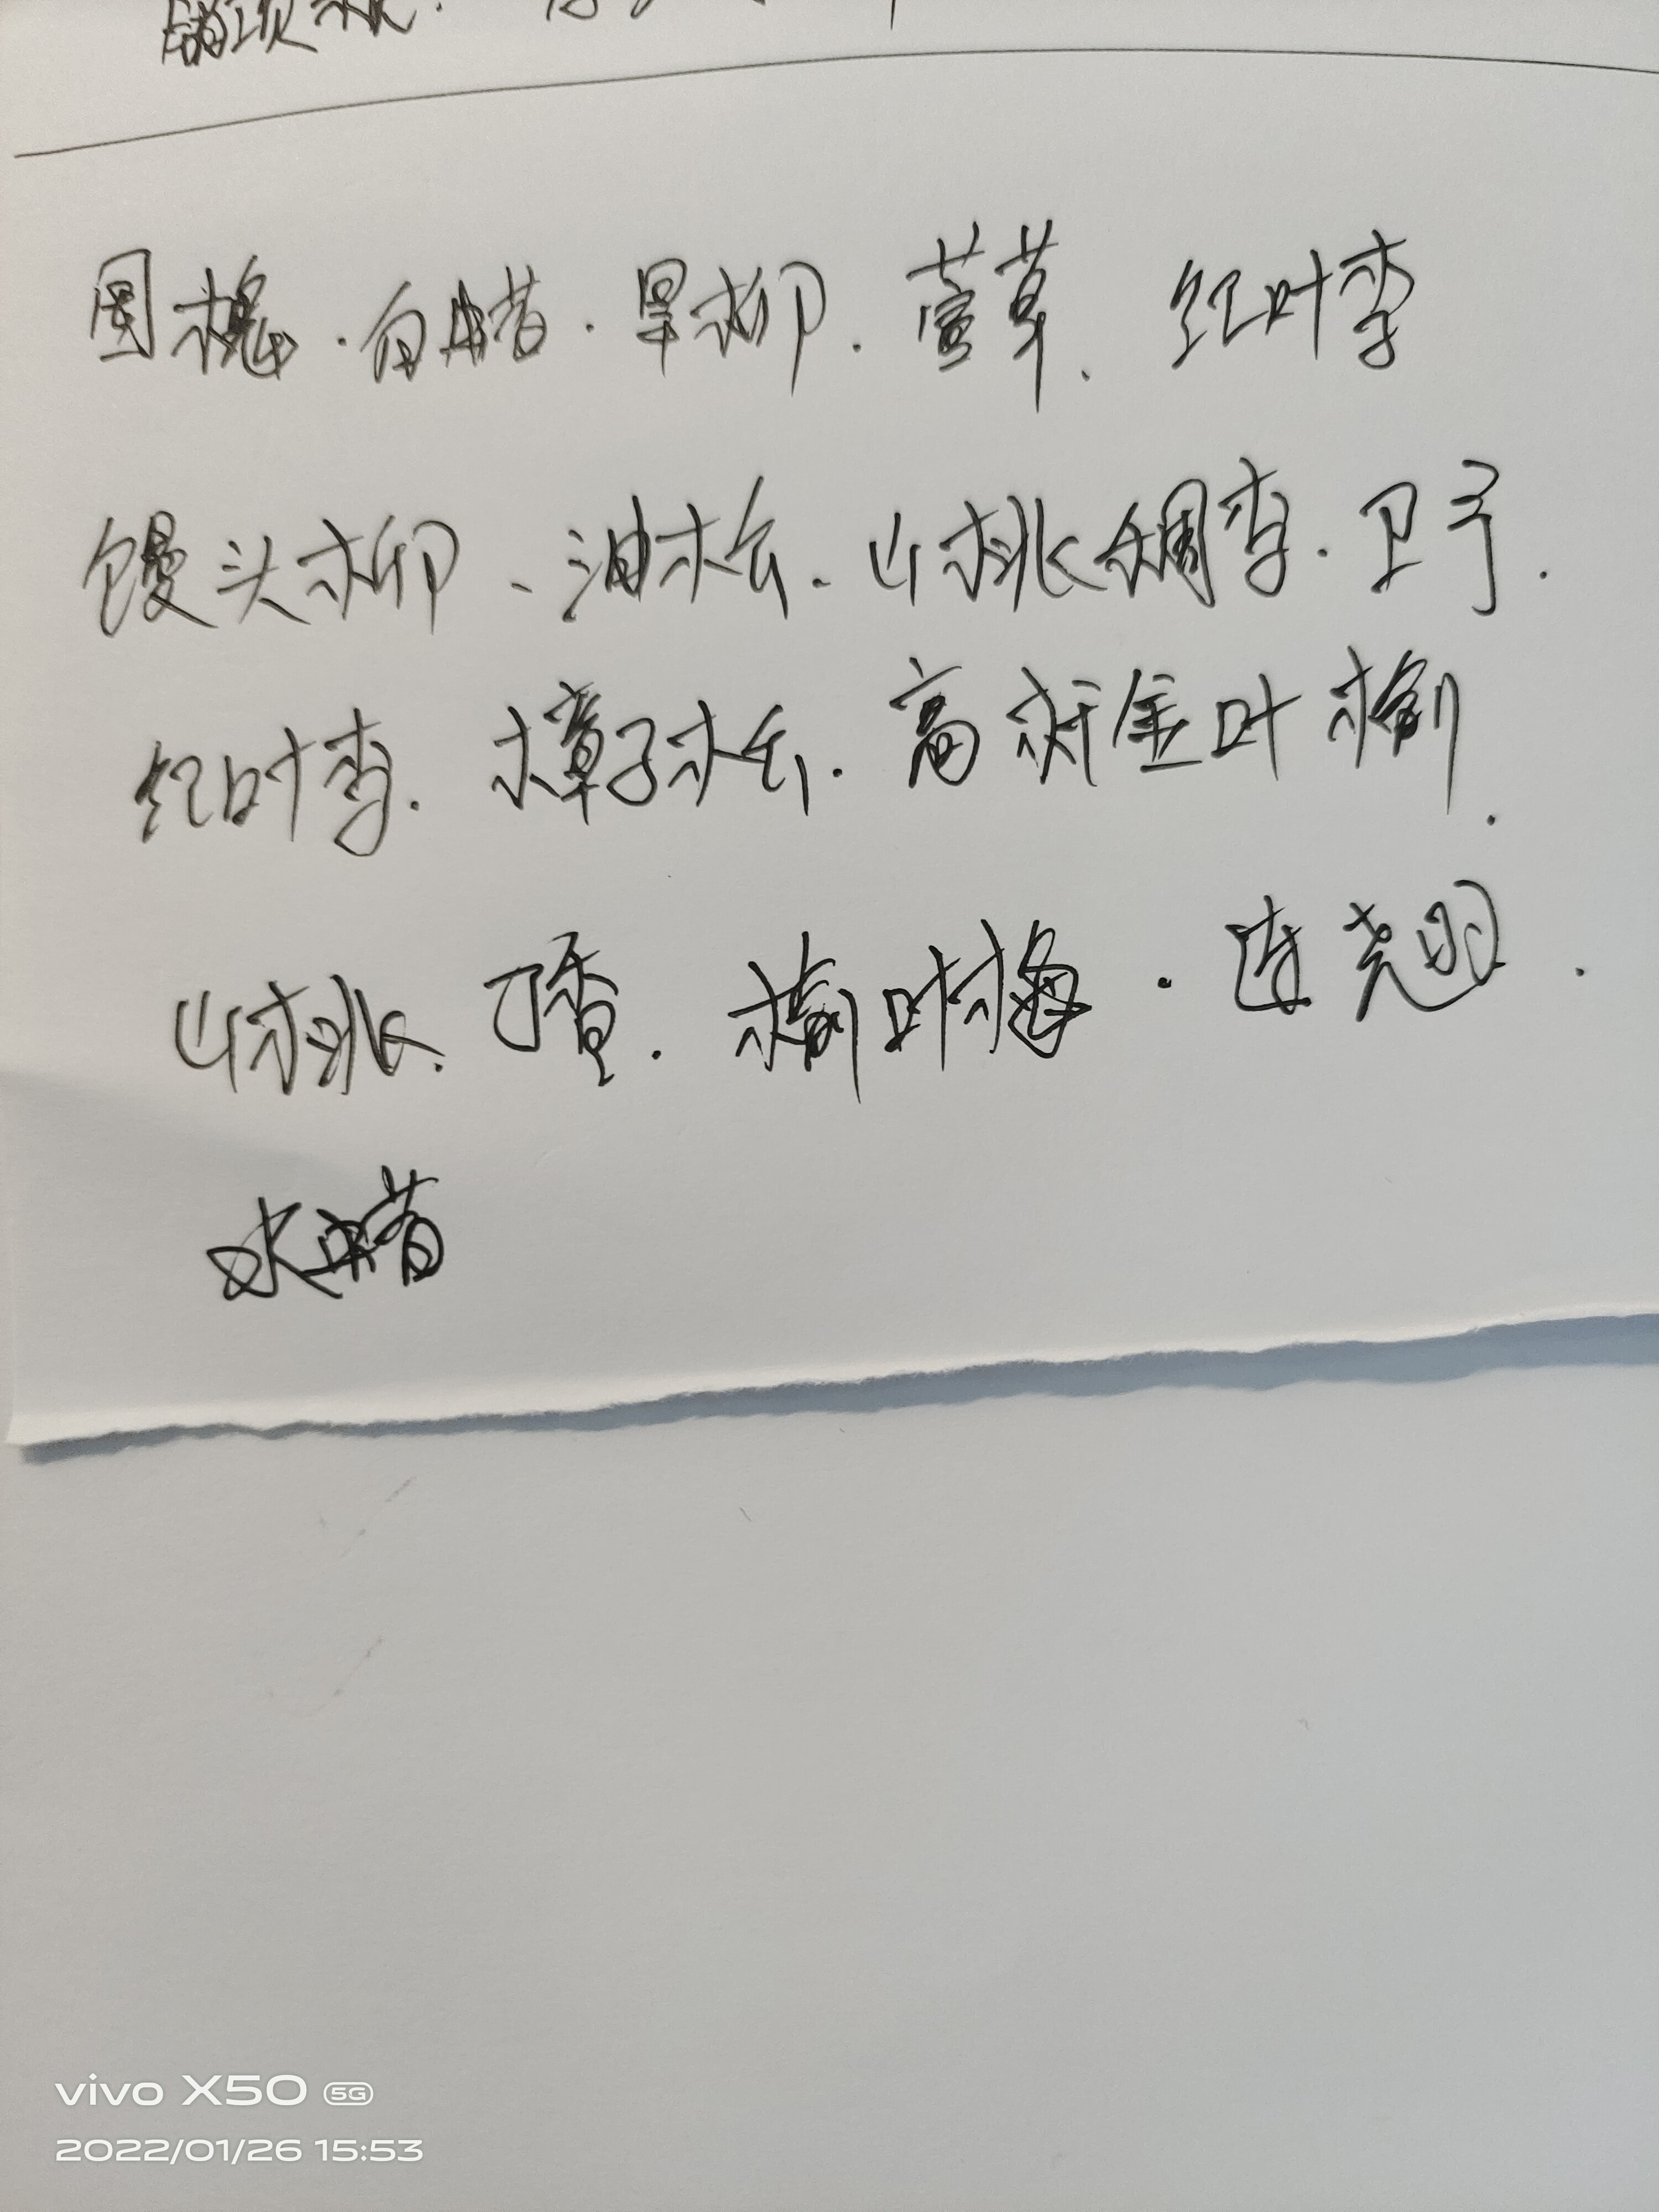 国槐.白蜡.旱柳.萱草.红叶李
馒头柳、油松.山桃稠李.卫矛.
红叶李.樟子松.高杆金叶榆.
山桃.丁香.榆叶梅.连翘.
水蜡
vivo X50 5G
2022/01/26 15:53